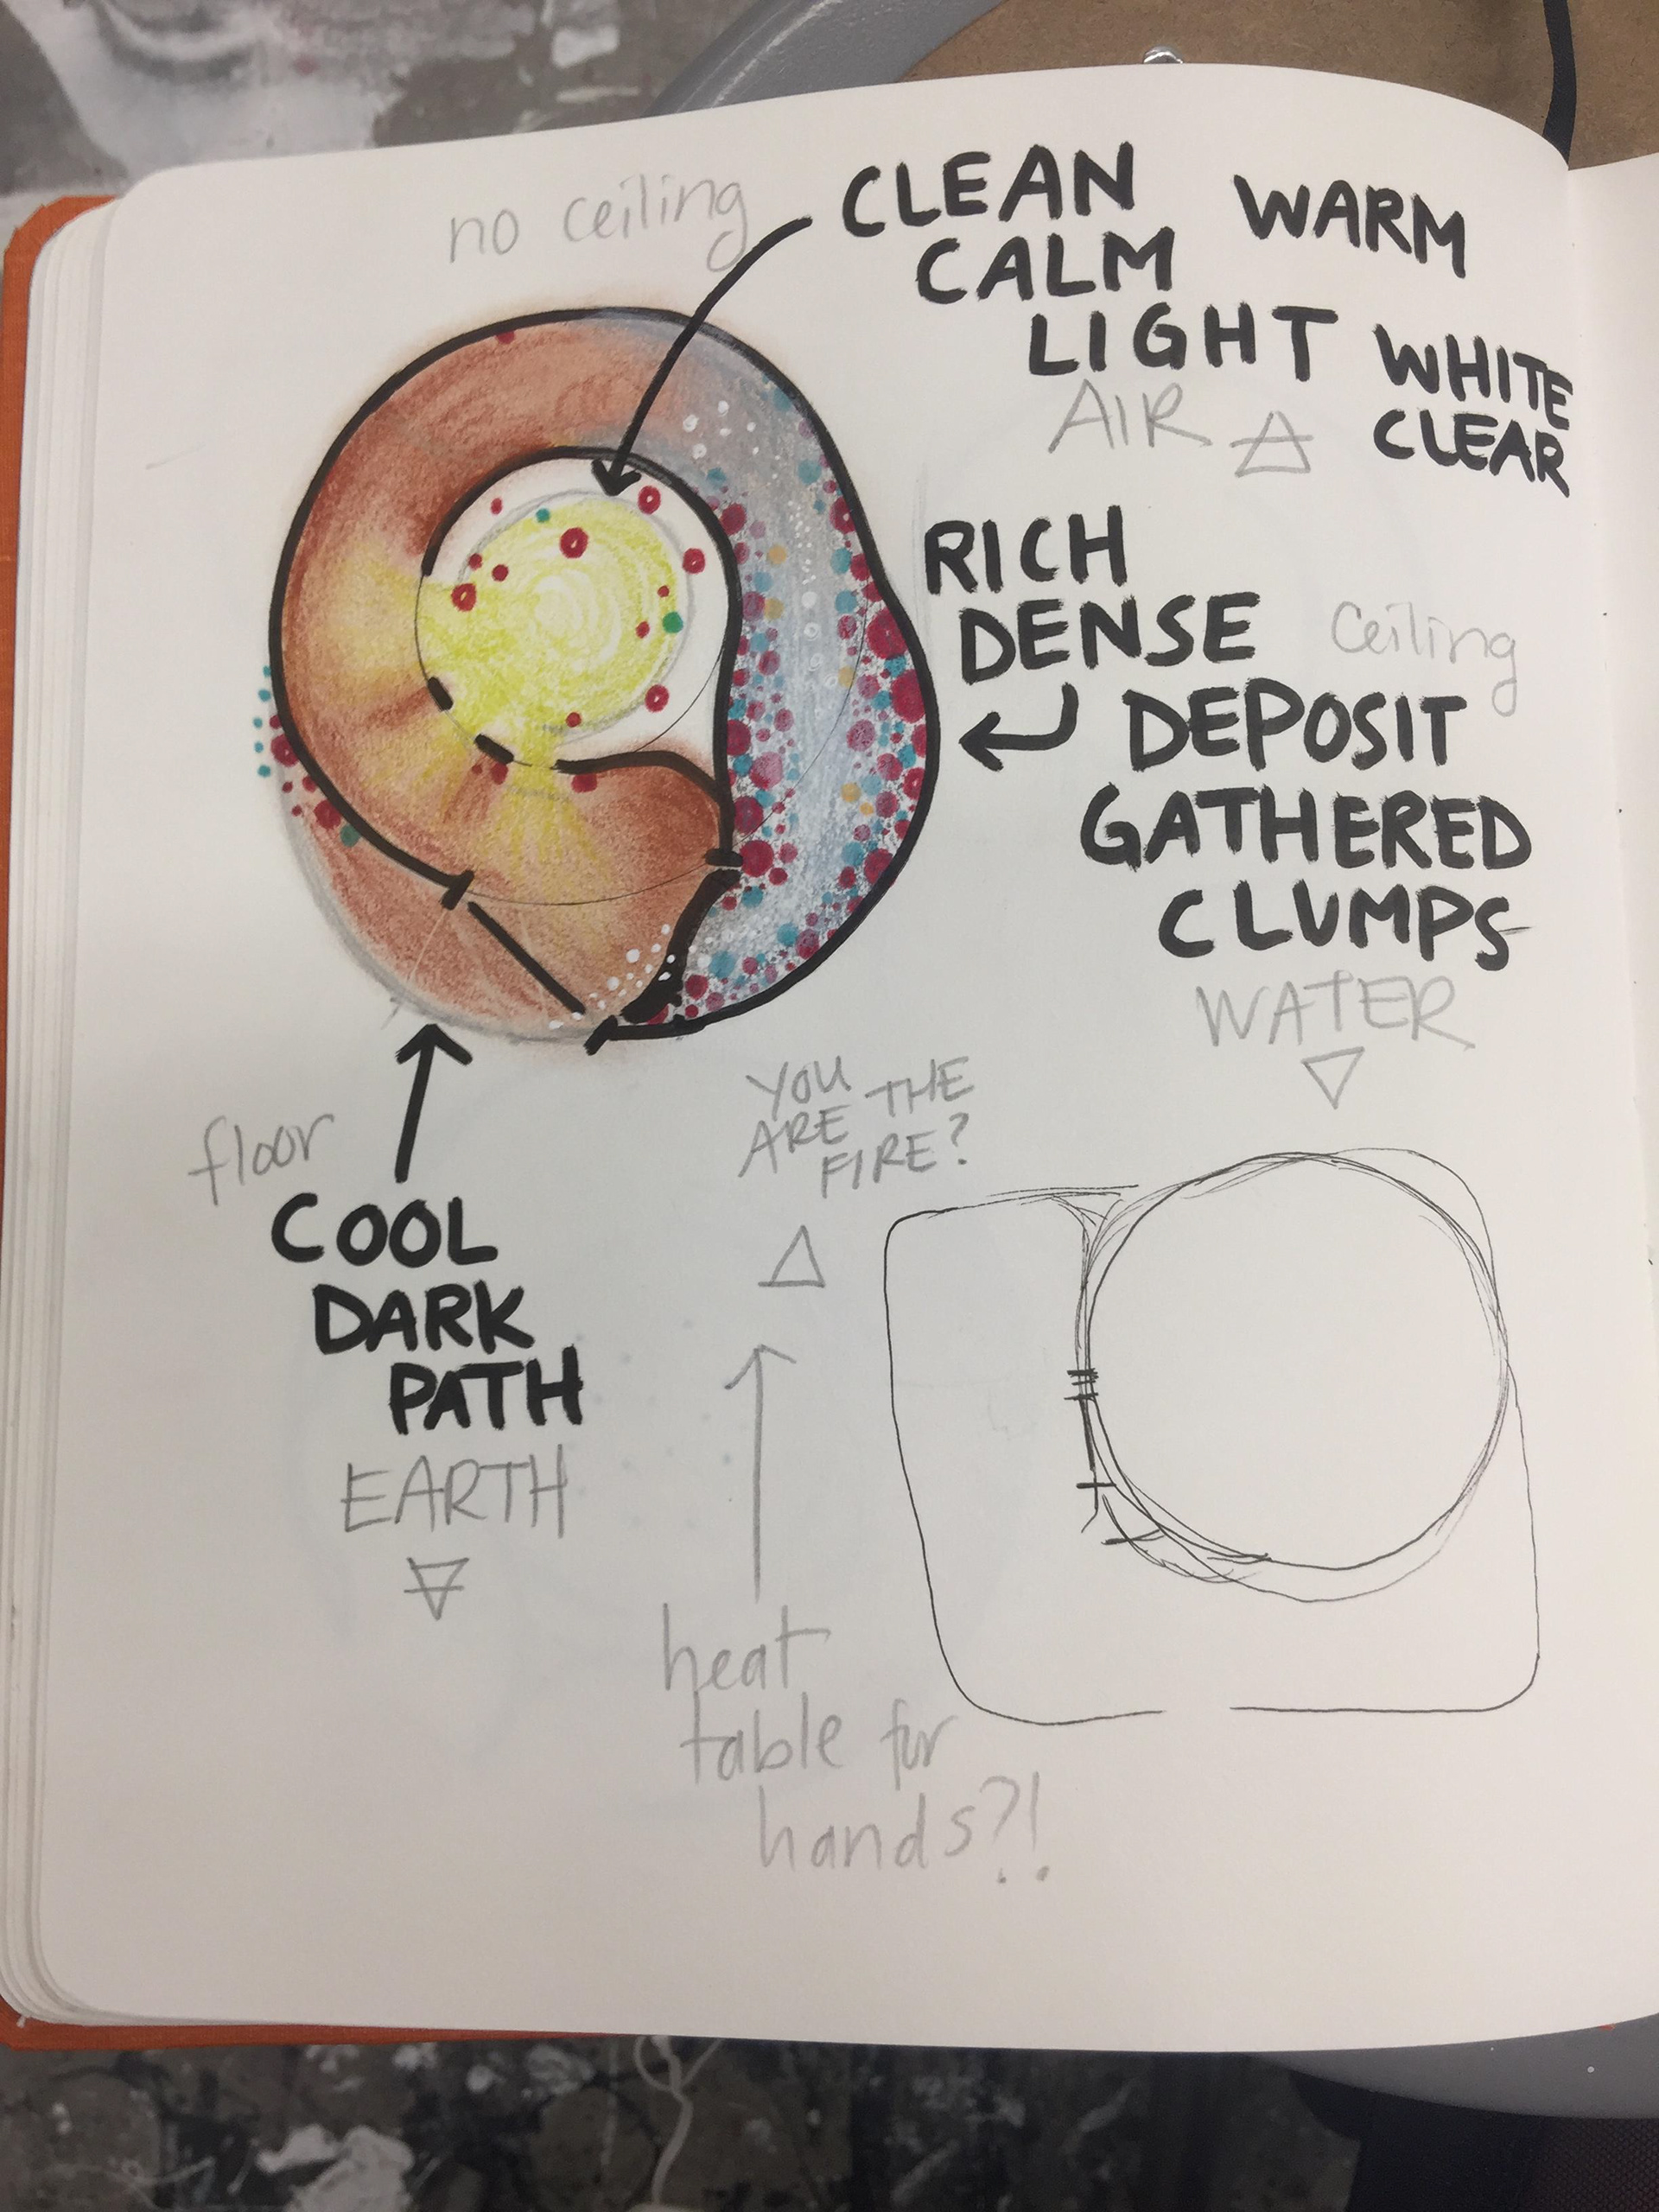 no ceiling
CLEAN WARM
CALM
LIGHT WHITE
AIR CLEAR
RICH
DENSE ceiling
DEPOSIT
GATHERED
CLUMPS
WATER
YOU
ARE THE
FIRE?
floor
COOL
DARK
PATH
EARTH
heat
table for
hands?!